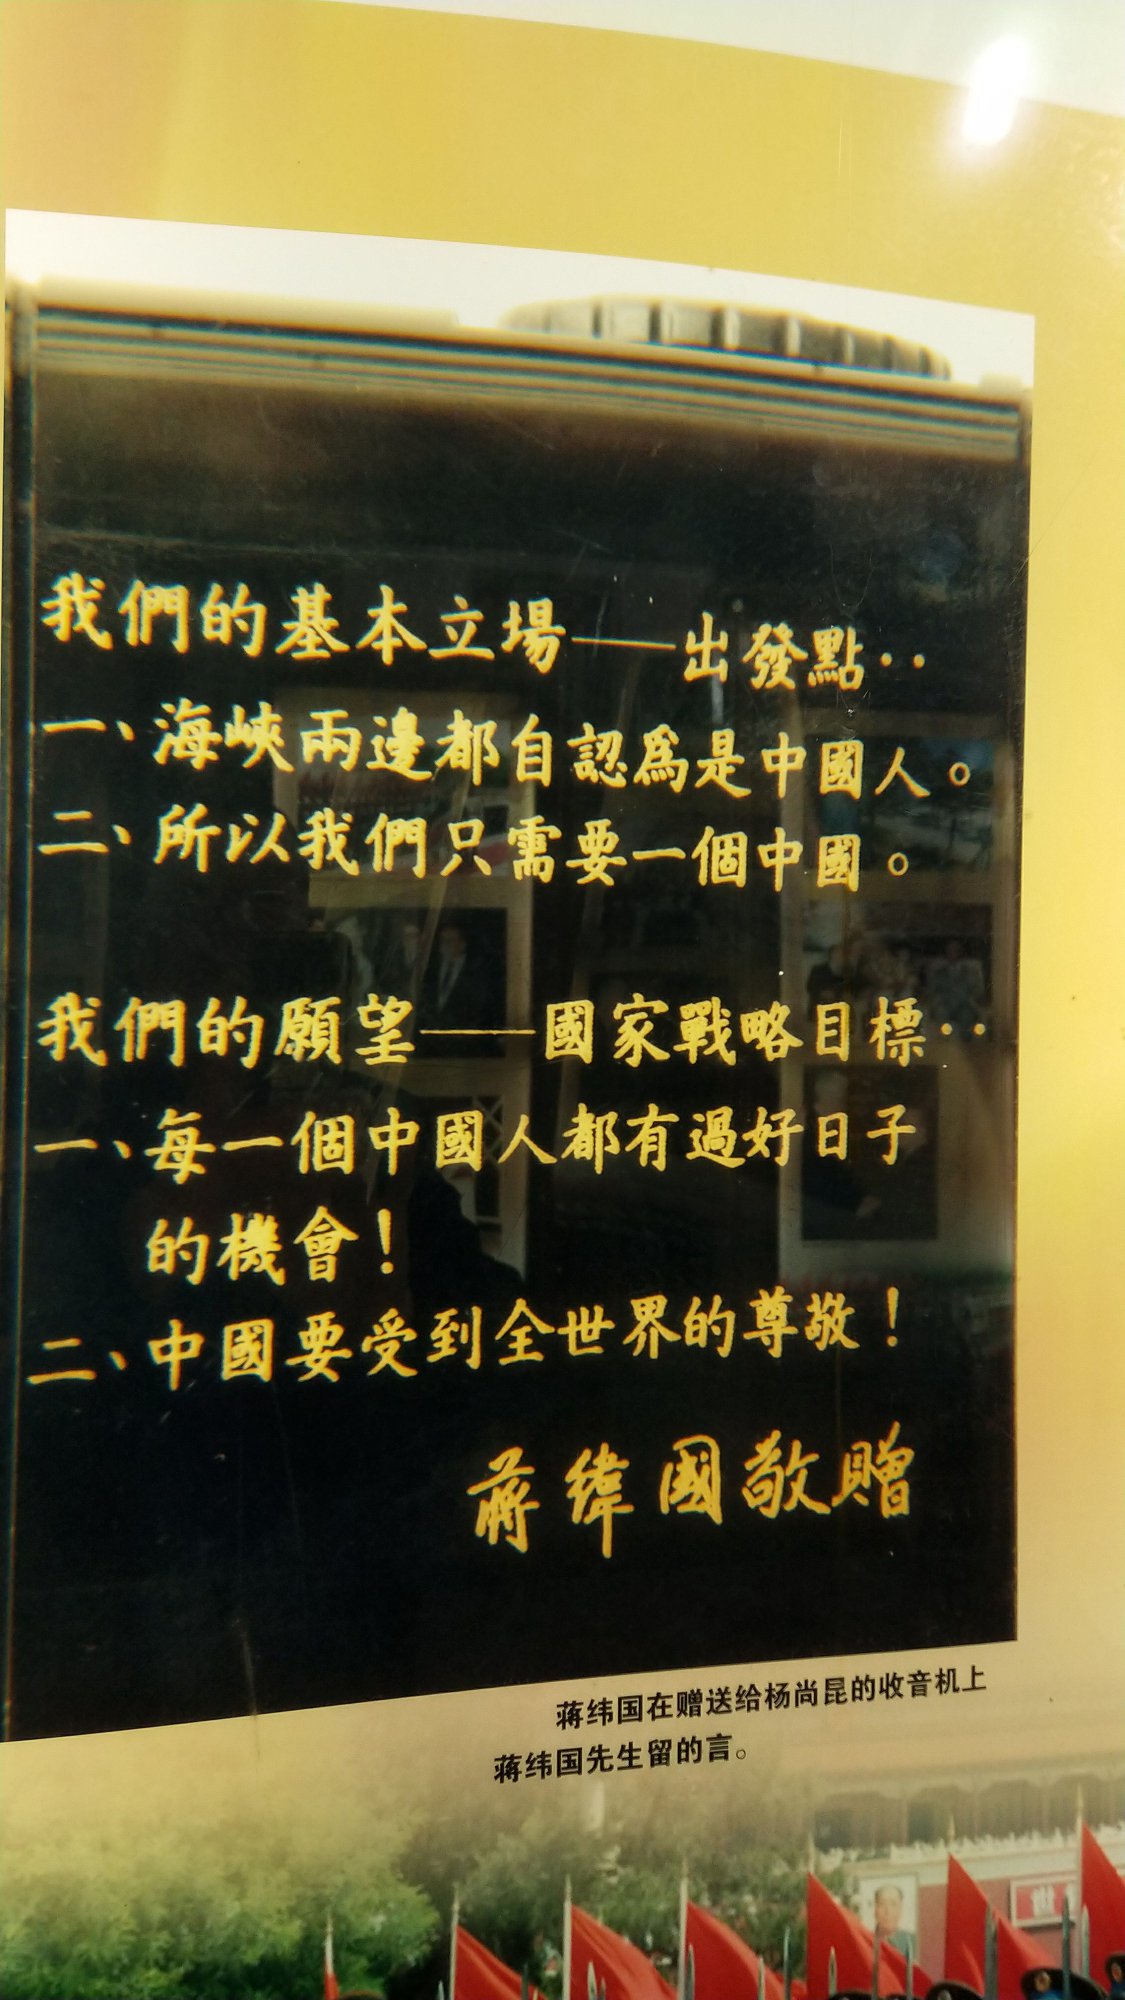 我們的基本立場——出發點:
一、海峽兩邊都自認爲是中國人。
二、所以我們只需要一個中國。
我們的願望——國家戰略目標:
一、每一個中國人都有過好日子
的機會!
二、中國要受到全世界的尊敬!
蔣緯國敬贈
蒋纬国在赠送给杨尚昆的收音机上
蒋纬国先生留的言。